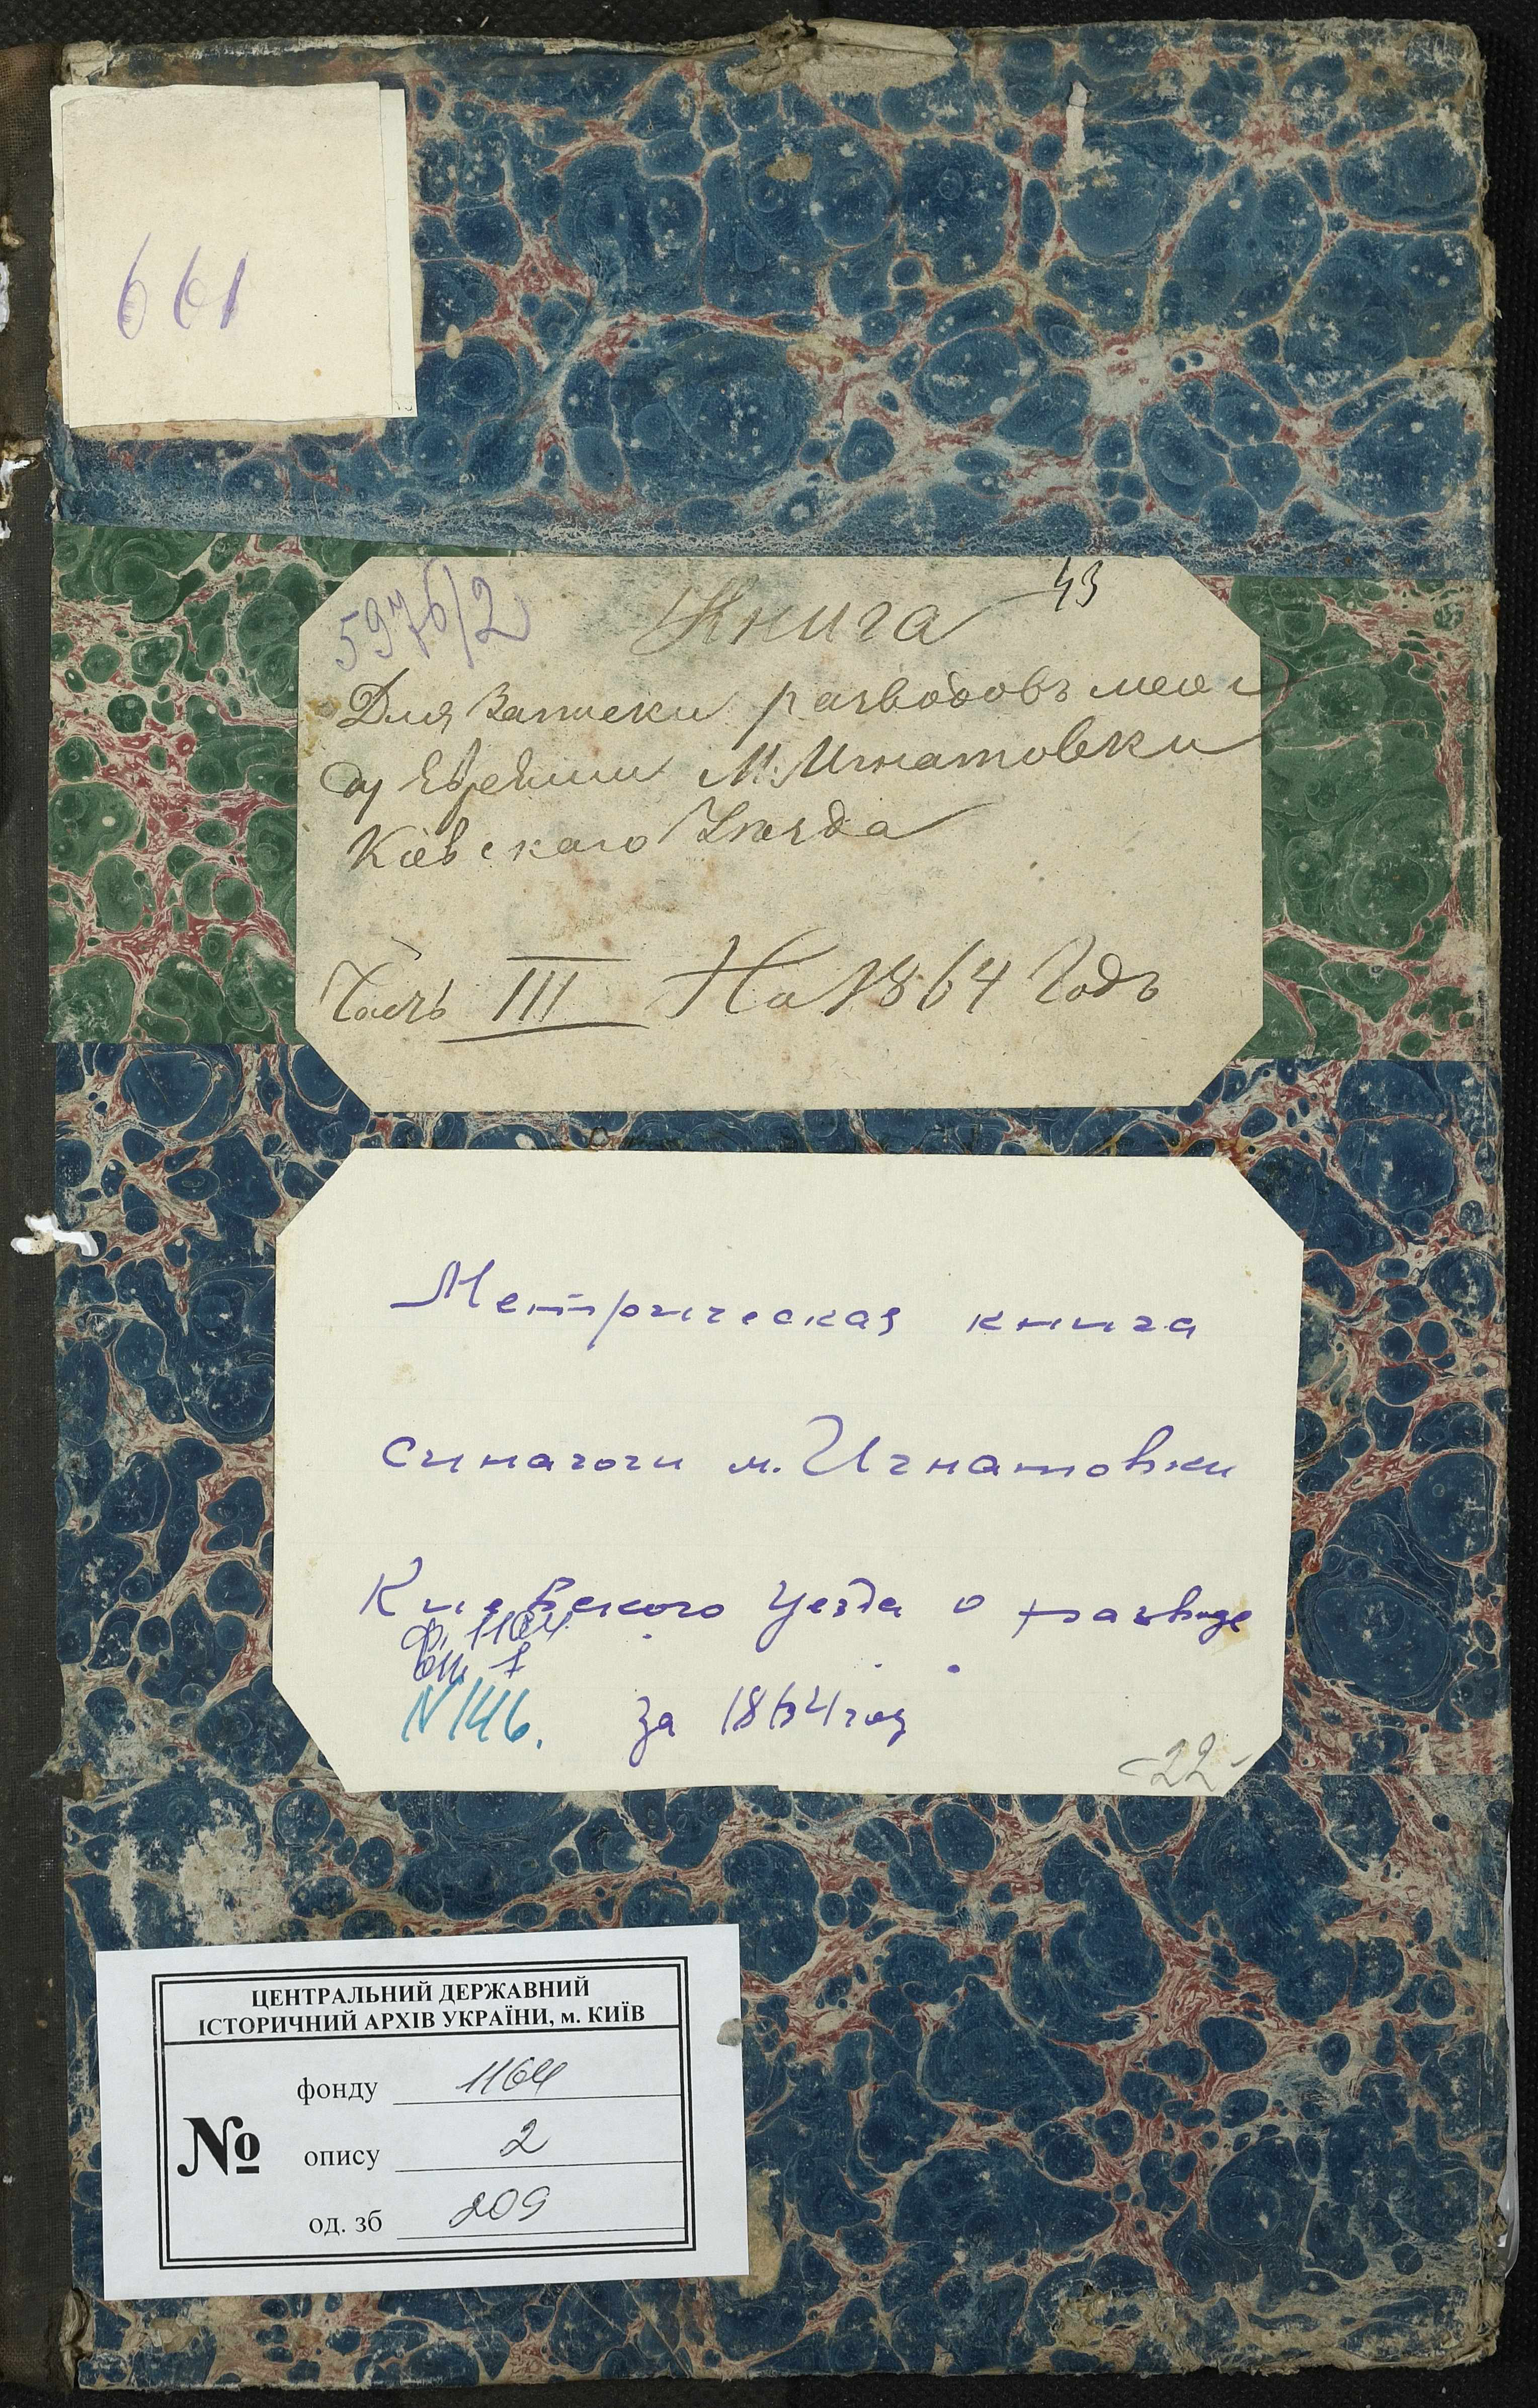 661
5976/2
43
Книга
Для Записки разводовъ меж
ду Евреями М. Игнатовки
Кіевскаго Уезда
Часть III На 1864 Годъ
Метрическая книга
синагоги м. Игнатовки
Киевского уезда о разводе
ф. 1164
оп. 1
N 146.
за 1864 год
-22-
ЦЕНТРАЛЬНИЙ ДЕРЖАВНИЙ
ІСТОРИЧНИЙ АРХІВ УКРАЇНИ, м. КИЇВ
№
фонду 1164
опису 2
од. зб 209